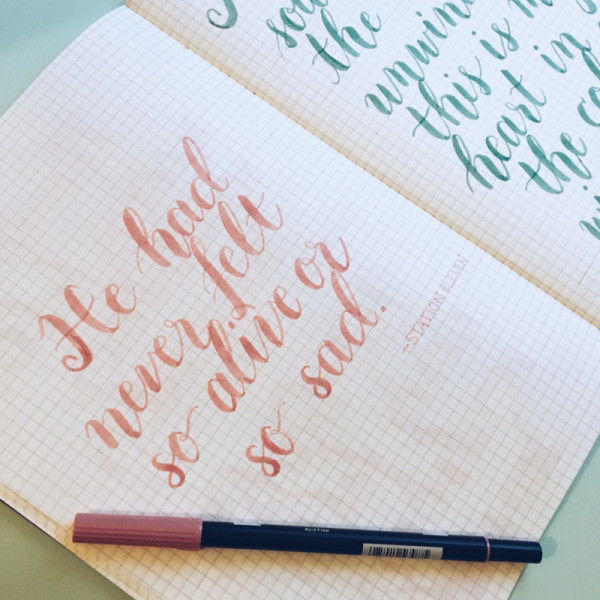 He had
never felt
so alive or
so sad.
—STATION ELEVEN
the
this is
heart in
the